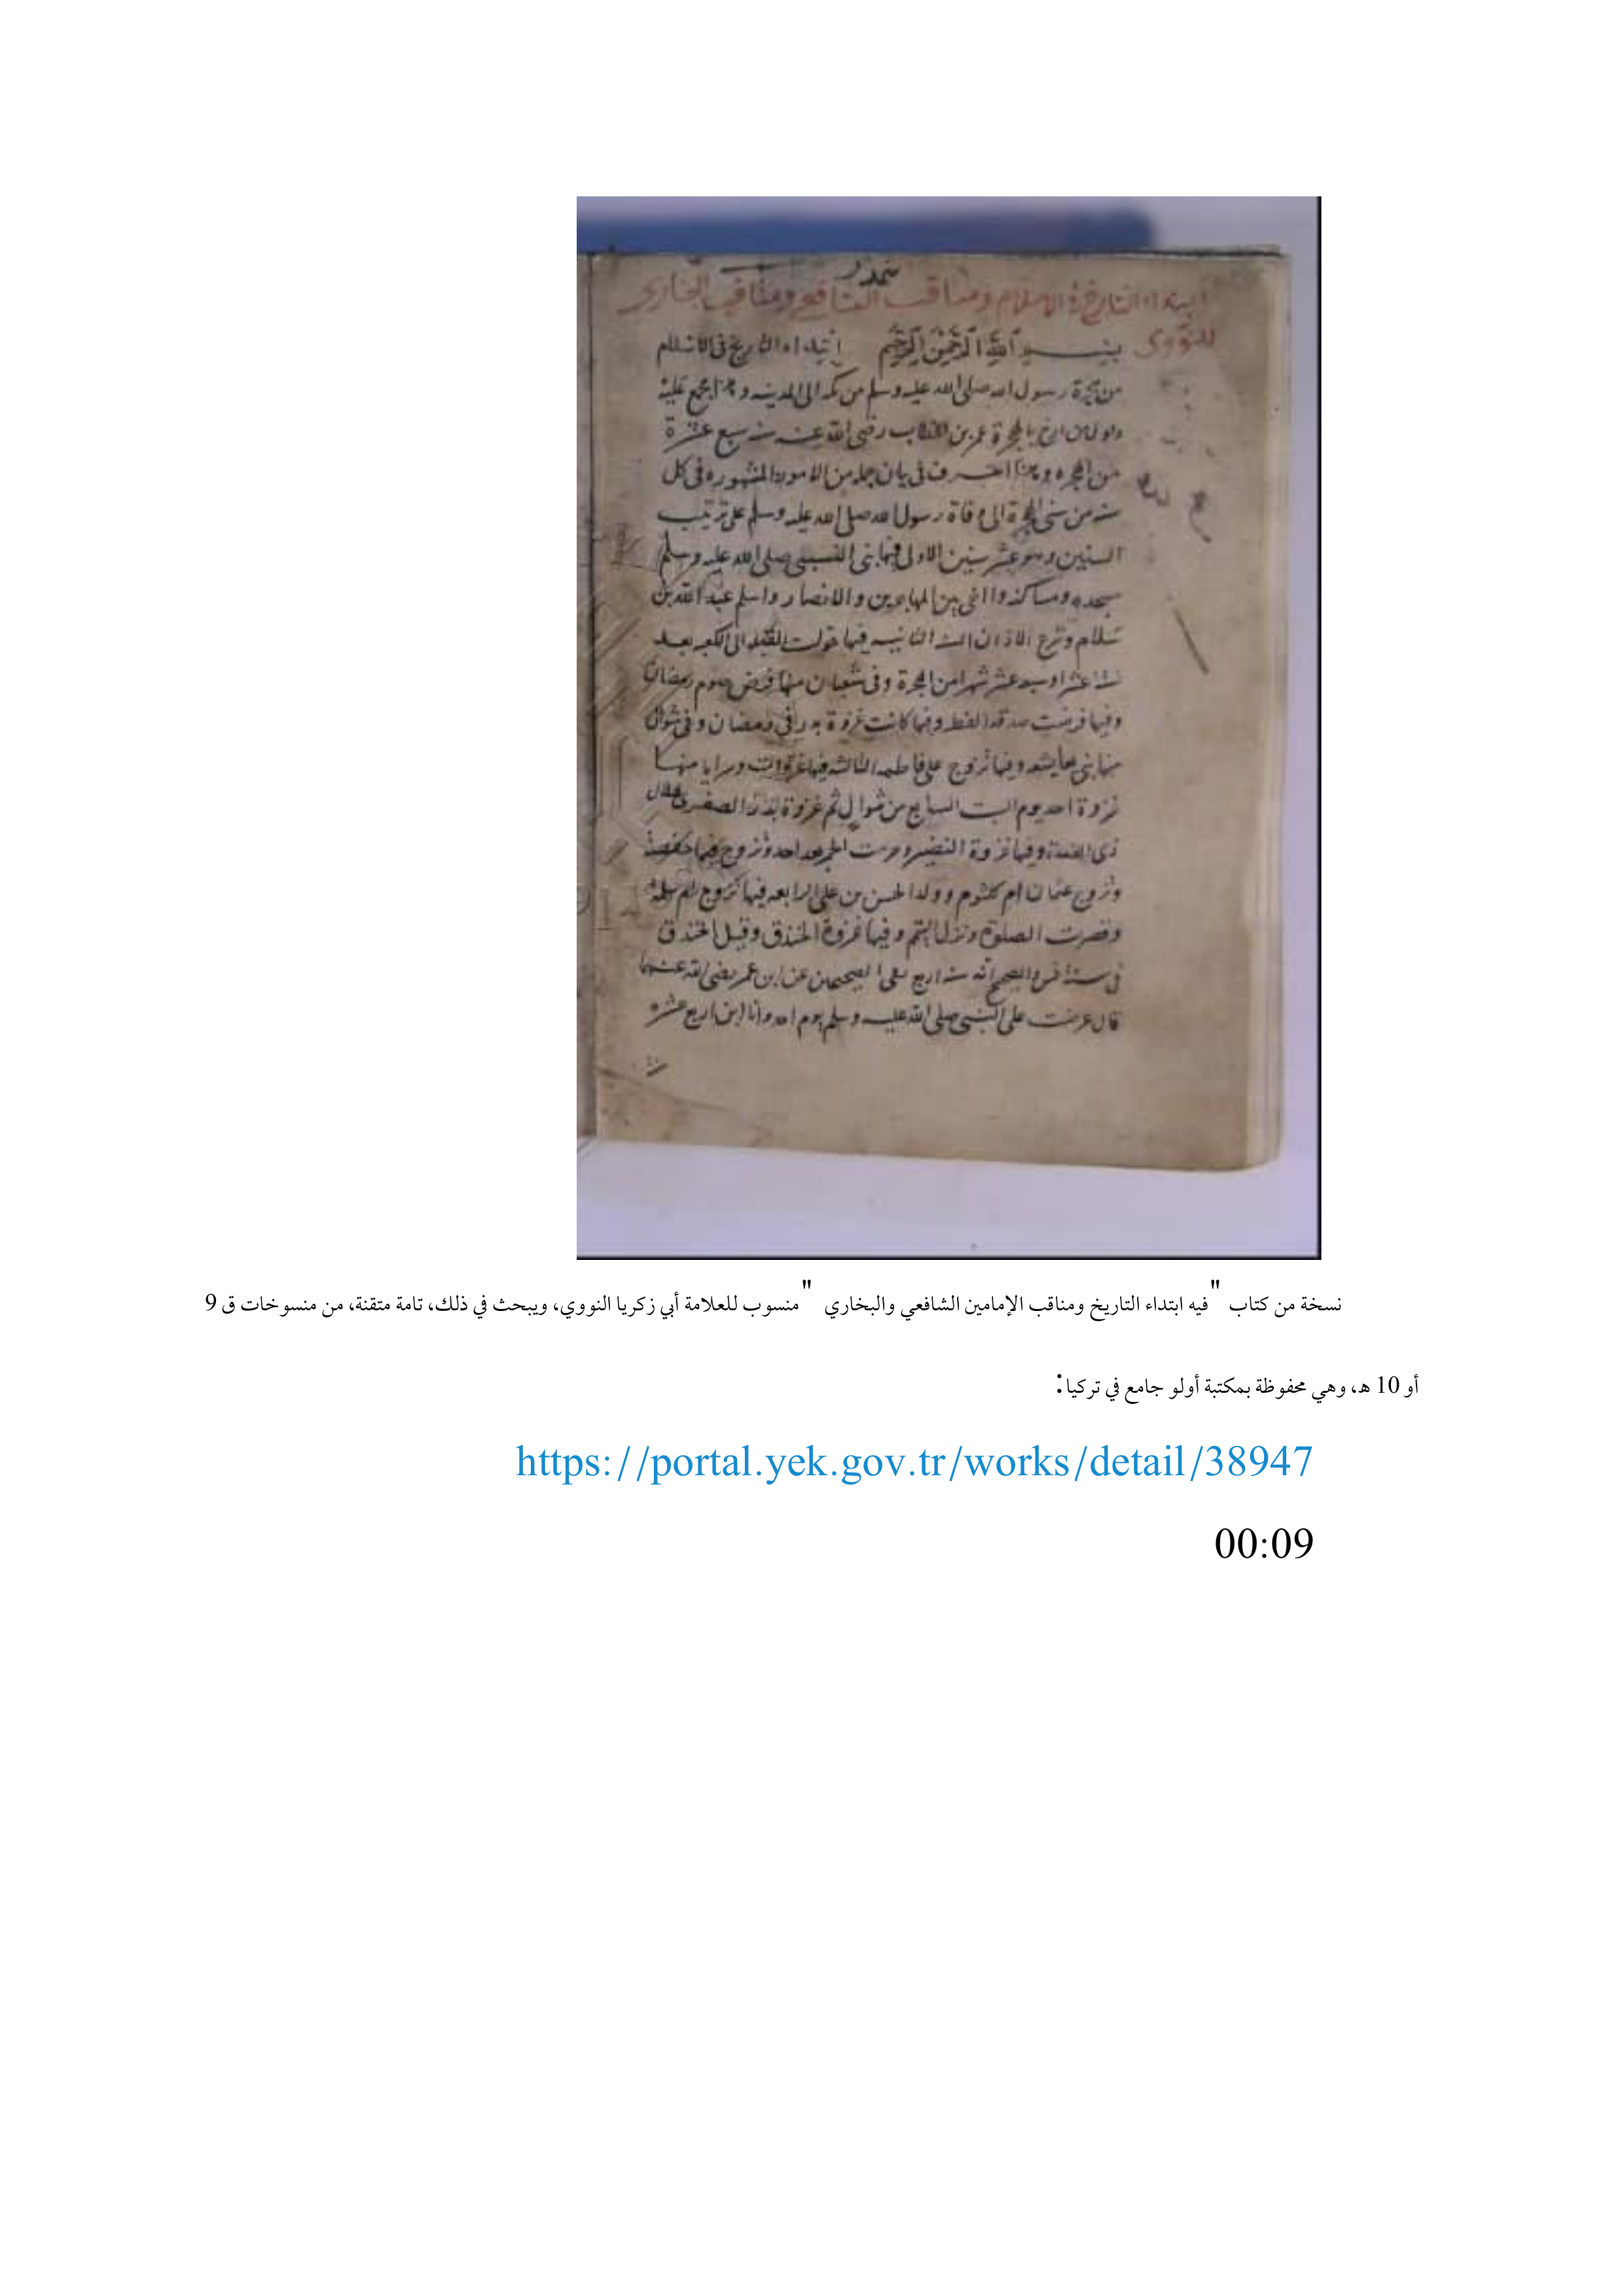 ابتداء التاريخ في الاسلام ومناقب الشافعي ومناقب البخاري
للنووى
بسم الله الرحمن الرحيم ابتداء التاريخ فى الاسلام
من هجرة رسول الله صلى الله عليه وسلم من مكة الى المدينه وهذا مجمع عليه
واول من ارخ بالهجرة عمر بن الخطاب رضى الله عنه سنه سبع عشرة
من الهجره وهذا احرف فى بيان جمله من الامور المشهوره فى كل
سنه من سنى الهجرة الى وفاة رسول الله صلى الله عليه وسلم على ترتيب
السنين وهو عشر سنين الاولى فيها بنى النبى صلى الله عليه وسلم
مسجده ومساكنه واآخى بين المهاجرين والانصار واسلم عبد الله بن
سلام وشرع الاذان السنه الثانيه فيها حولت القبله الى الكعبه بعد
سته عشر او سبعه عشر شهرا من الهجرة وفى شعبان منها فرض صوم رمضان
وفيها فرضت صدقه الفطر وفيها كانت غزوة بدر فى رمضان وفى شوال
منها بنى بعايشه وفيها تزوج على فاطمه الثالثه فيها غزوات وسرايا منها
غزوة احد يوم السبت السابع من شوال ثم غزوة بدر الصغرى هلال
ذى القعدة وفيها غزوة النضير وحرمت الخمر بعد احد وتزوج فيها حفصه
وتزوج عثمان ام كلثوم وولد الحسن بن على الرابعه فيها تزوج ام سلمه
وقصرت الصلوة ونزل التيمم وفيها غزوة الخندق وقيل الخندق
فى سنه خمس والصحيح انه سنه اربع ففى الصحيحين عن ابن عمر رضى الله عنهما
قال عرضت على النبى صلى الله عليه وسلم يوم احد وانا ابن اربع عشره
سنه
نسخة من كتاب "فيه ابتداء التاريخ ومناقب الإمامين الشافعي والبخاري " منسوب للعلامة أبي زكريا النووي، ويبحث في ذلك، تامة متقنة، من منسوخات ق 9
أو 10 هـ، وهي محفوظة بمكتبة أولو جامع في تركيا:
https://portal.yek.gov.tr/works/detail/38947
00:09